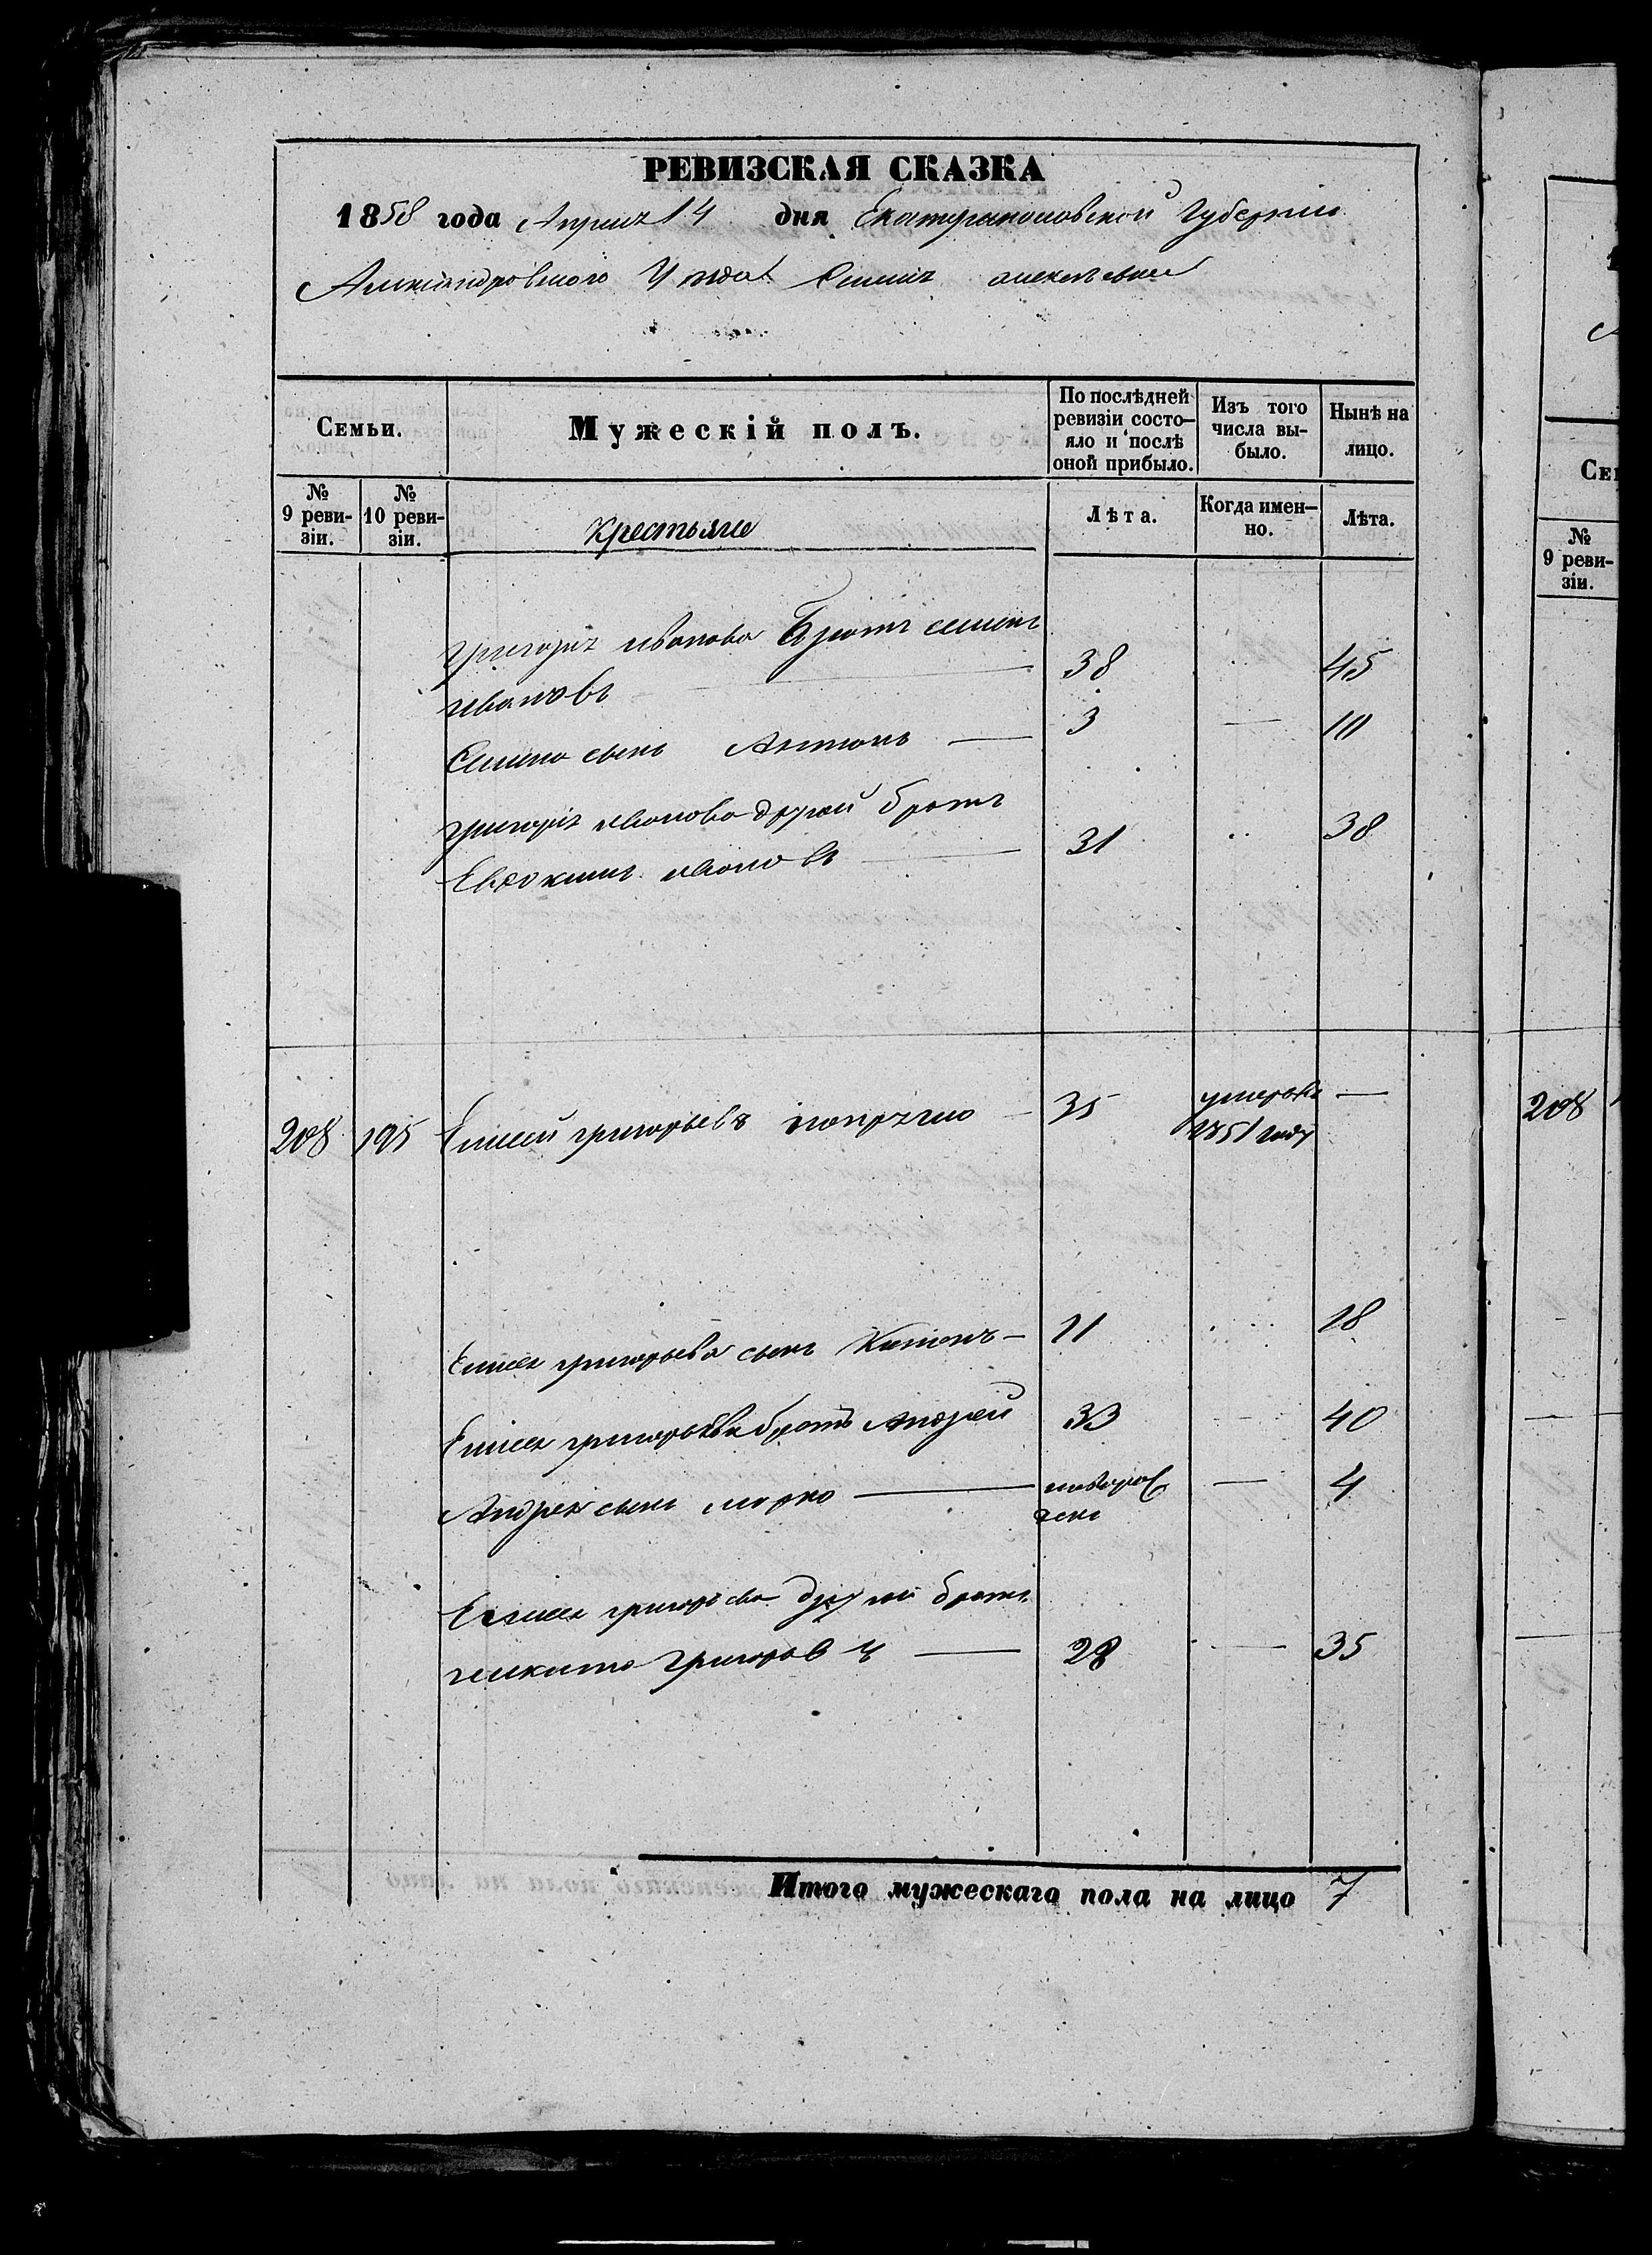 РЕВИЗСКАЯ СКАЗКА
1858 года Априля 14 дня Екатеринославской Губернии
Александровского Уезда
Семьи.
Мужескій полъ.
По послѣдней ревизіи состо-
яло и послѣ
оной прибыло.
Изъ того
числа вы-
было.
Нынѣ на
лицо.
№
9 реви-
зіи.
№
10 реви-
зіи.
Крестьяне
Лѣта.
Когда имен-
но.
Лѣта.
Григорія иванова Братъ семенъ
ивановъ 38 45
Семена сынъ Антонъ 3 10
григорія иванова другой братъ
Евдокимъ ивановъ 31 38
208 195 Елисей григорьевъ 35 умеръ въ
1851 году
Елисея григорьева сынъ 11 18
Елисея григорьева братъ Андрей 33 40
Андрея сынъ марко новорож
денъ 4
Елисея григорьева другой братъ
никита григоровъ 28 35
Итого мужескаго пола на лицо 7
Се
№
9 реви-
зіи.
208